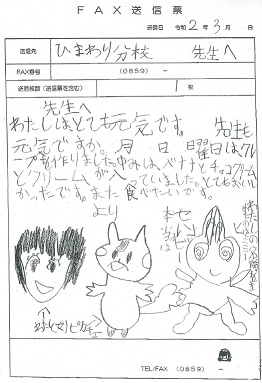 FAX送信票
送信日 令和 2年 3月 日
送信先 ひまわり分校 先生へ
FAX番号 (0859) -
送信枚数(送信票を含む) 枚
先生へ
わたしはとても元気です。 先生も
元気ですか。 月 日 曜日はクレ
ープを作りました。中みは、バナナとチョコクリーム
とクリームが入っていました。とてもおいし
かったです。また食べたいです。
より
TEL/FAX (0859) -